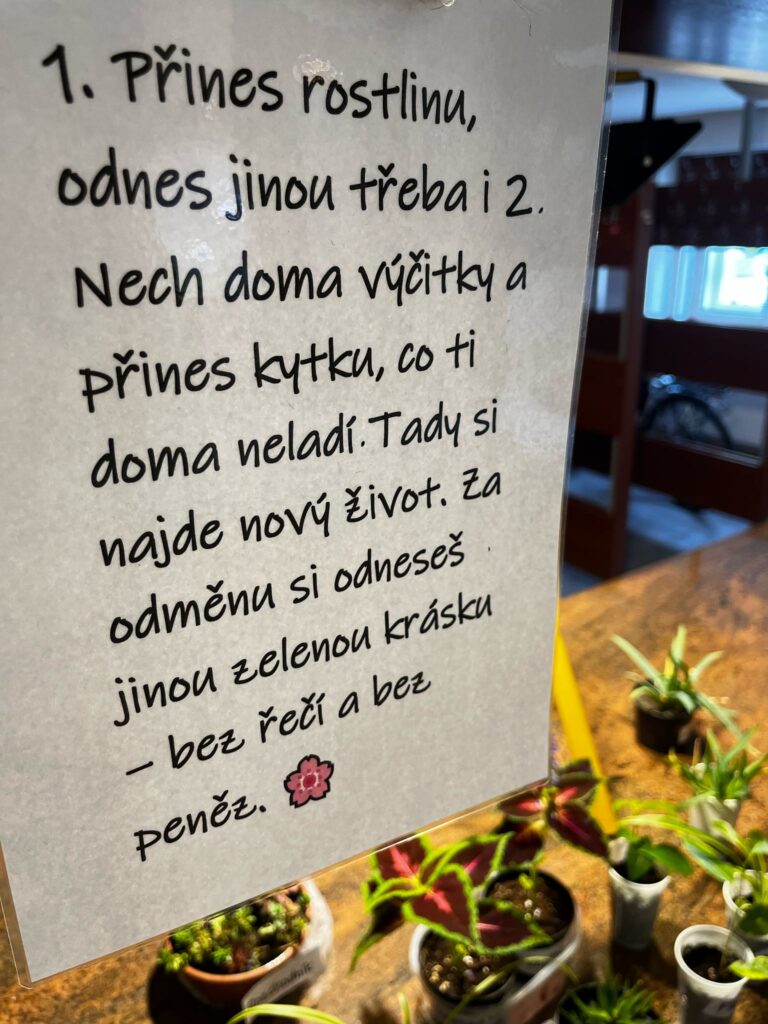 1. Přines rostlinu,
odnes jinou třeba i 2.
Nech doma výčitky a
přines kytku, co ti
doma neladí. Tady si
najde nový život. Za
odměnu si odneseš
jinou zelenou krásku
– bez řečí a bez
peněz. 🌸